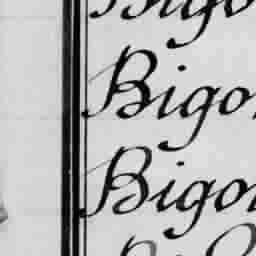 Bigo
Bigo
Bigo